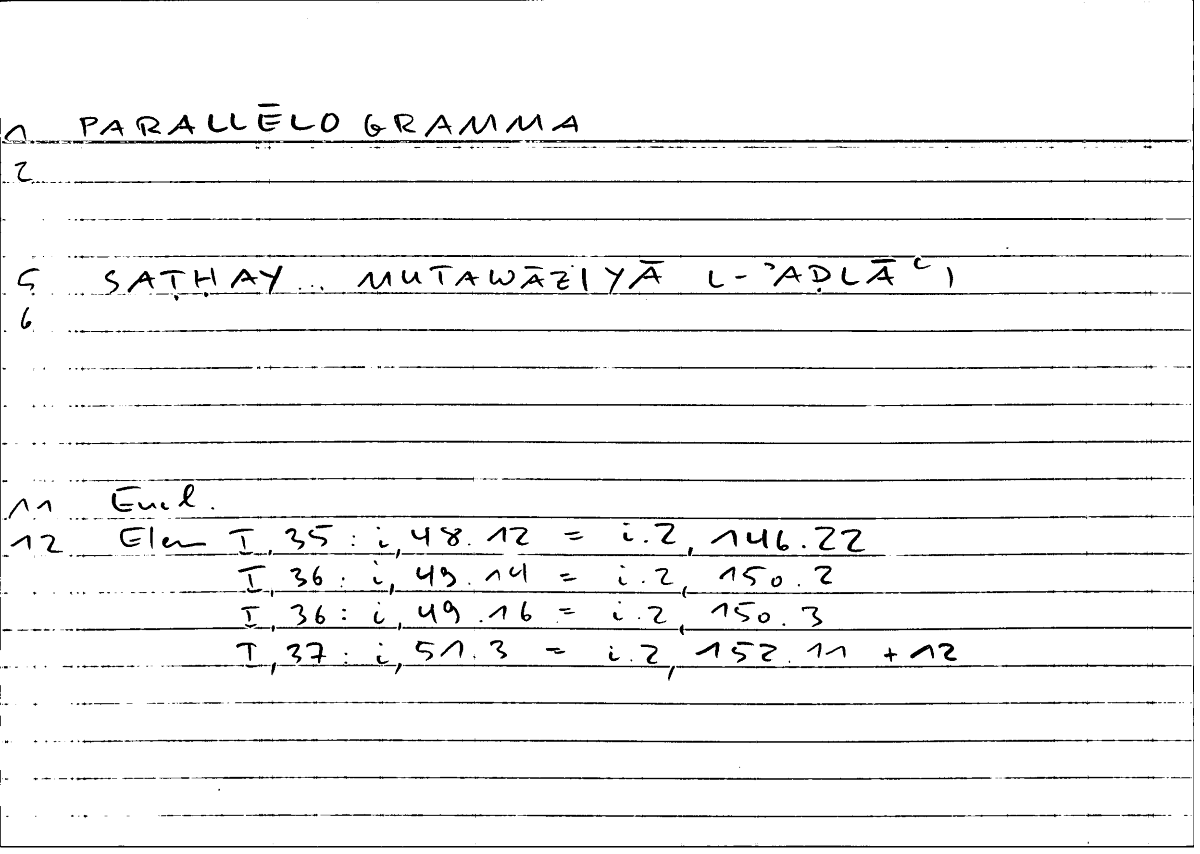 1 PARALLĒLOGRAMMA
2
5 SAṬḤAY... MUTAWĀZIYĀ L-ʾAḌLĀʿI
6
11 Eucl.
12 Elem I, 35 : i, 48.12 = i.2, 146.22
I, 36 : i, 49.14 = i.2, 150.2
I, 36 : i, 49.16 = i.2, 150.3
I, 37 : i, 51.3 = i.2, 152.11 + 12